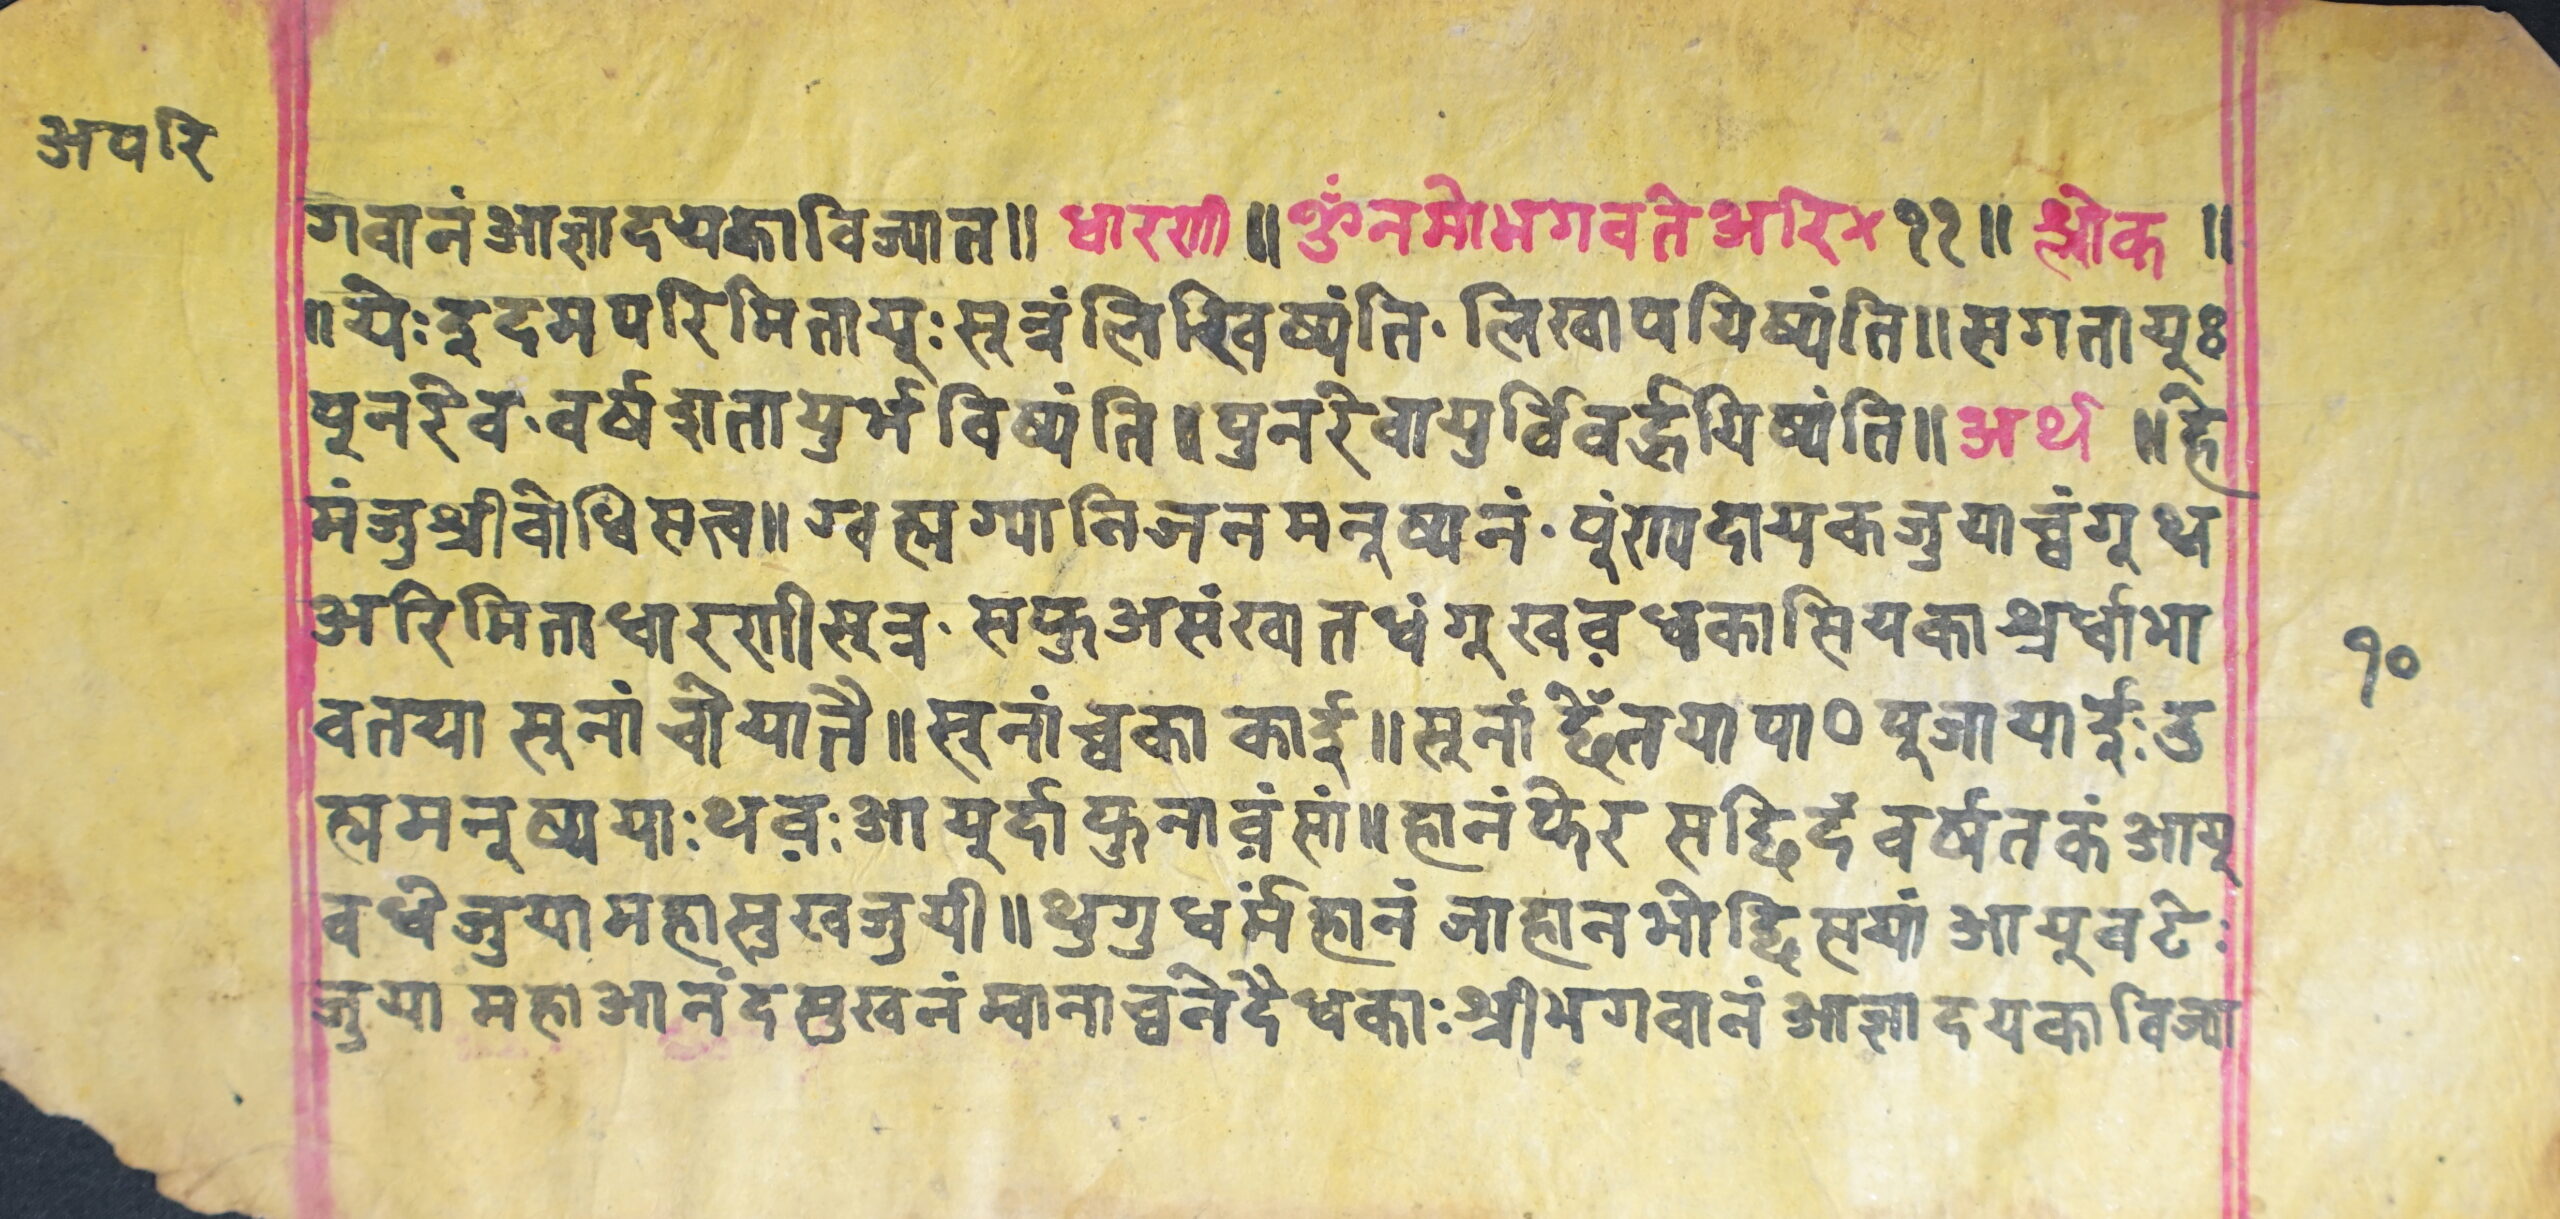 अपरि
गवानं आज्ञादयका विज्यात॥ धारणी॥ ॐ नमो भगवते अरि× ११॥ श्लोक॥
॥ येः इदमपरिमितायुः सूत्रं लिखिष्यंति· लिखापयिष्यंति॥ सगतायुः
पुनरेव· वर्षशतायुर्भविष्यंति॥ पुनरेवायुर्विवर्द्धयिष्यंति॥ अर्थ॥ हे
मंजुश्रीबोधिसत्व॥ ग्वह्मग्यानिजनमनुष्यनं· पुंण्यदायकजुयाच्वंगु थ्व
अरिमिताधारणीसूत्र· सफु असंख्यात धंगु खव़ धकासियका श्रर्धाभा
वतया सुनां चोयातै॥ सुनांच्वका काई॥ सुनां छेँतयापाठ पुजायाई ः उ
ह्ममनुष्ययाः थव़ः आयुर्दा फुनाव़ंसां॥ हानंफेर सछिदँ वर्षतकं आयु
वर्धेजुया महासुखजुयी॥ थुगुधर्मह्मानं जाहानभोछिसयां आयुवटेः
जुया महाआनंदसुखनं म्वानाच्वनेदै धकाः श्रीभगवानं आज्ञादयका विज्या
१०